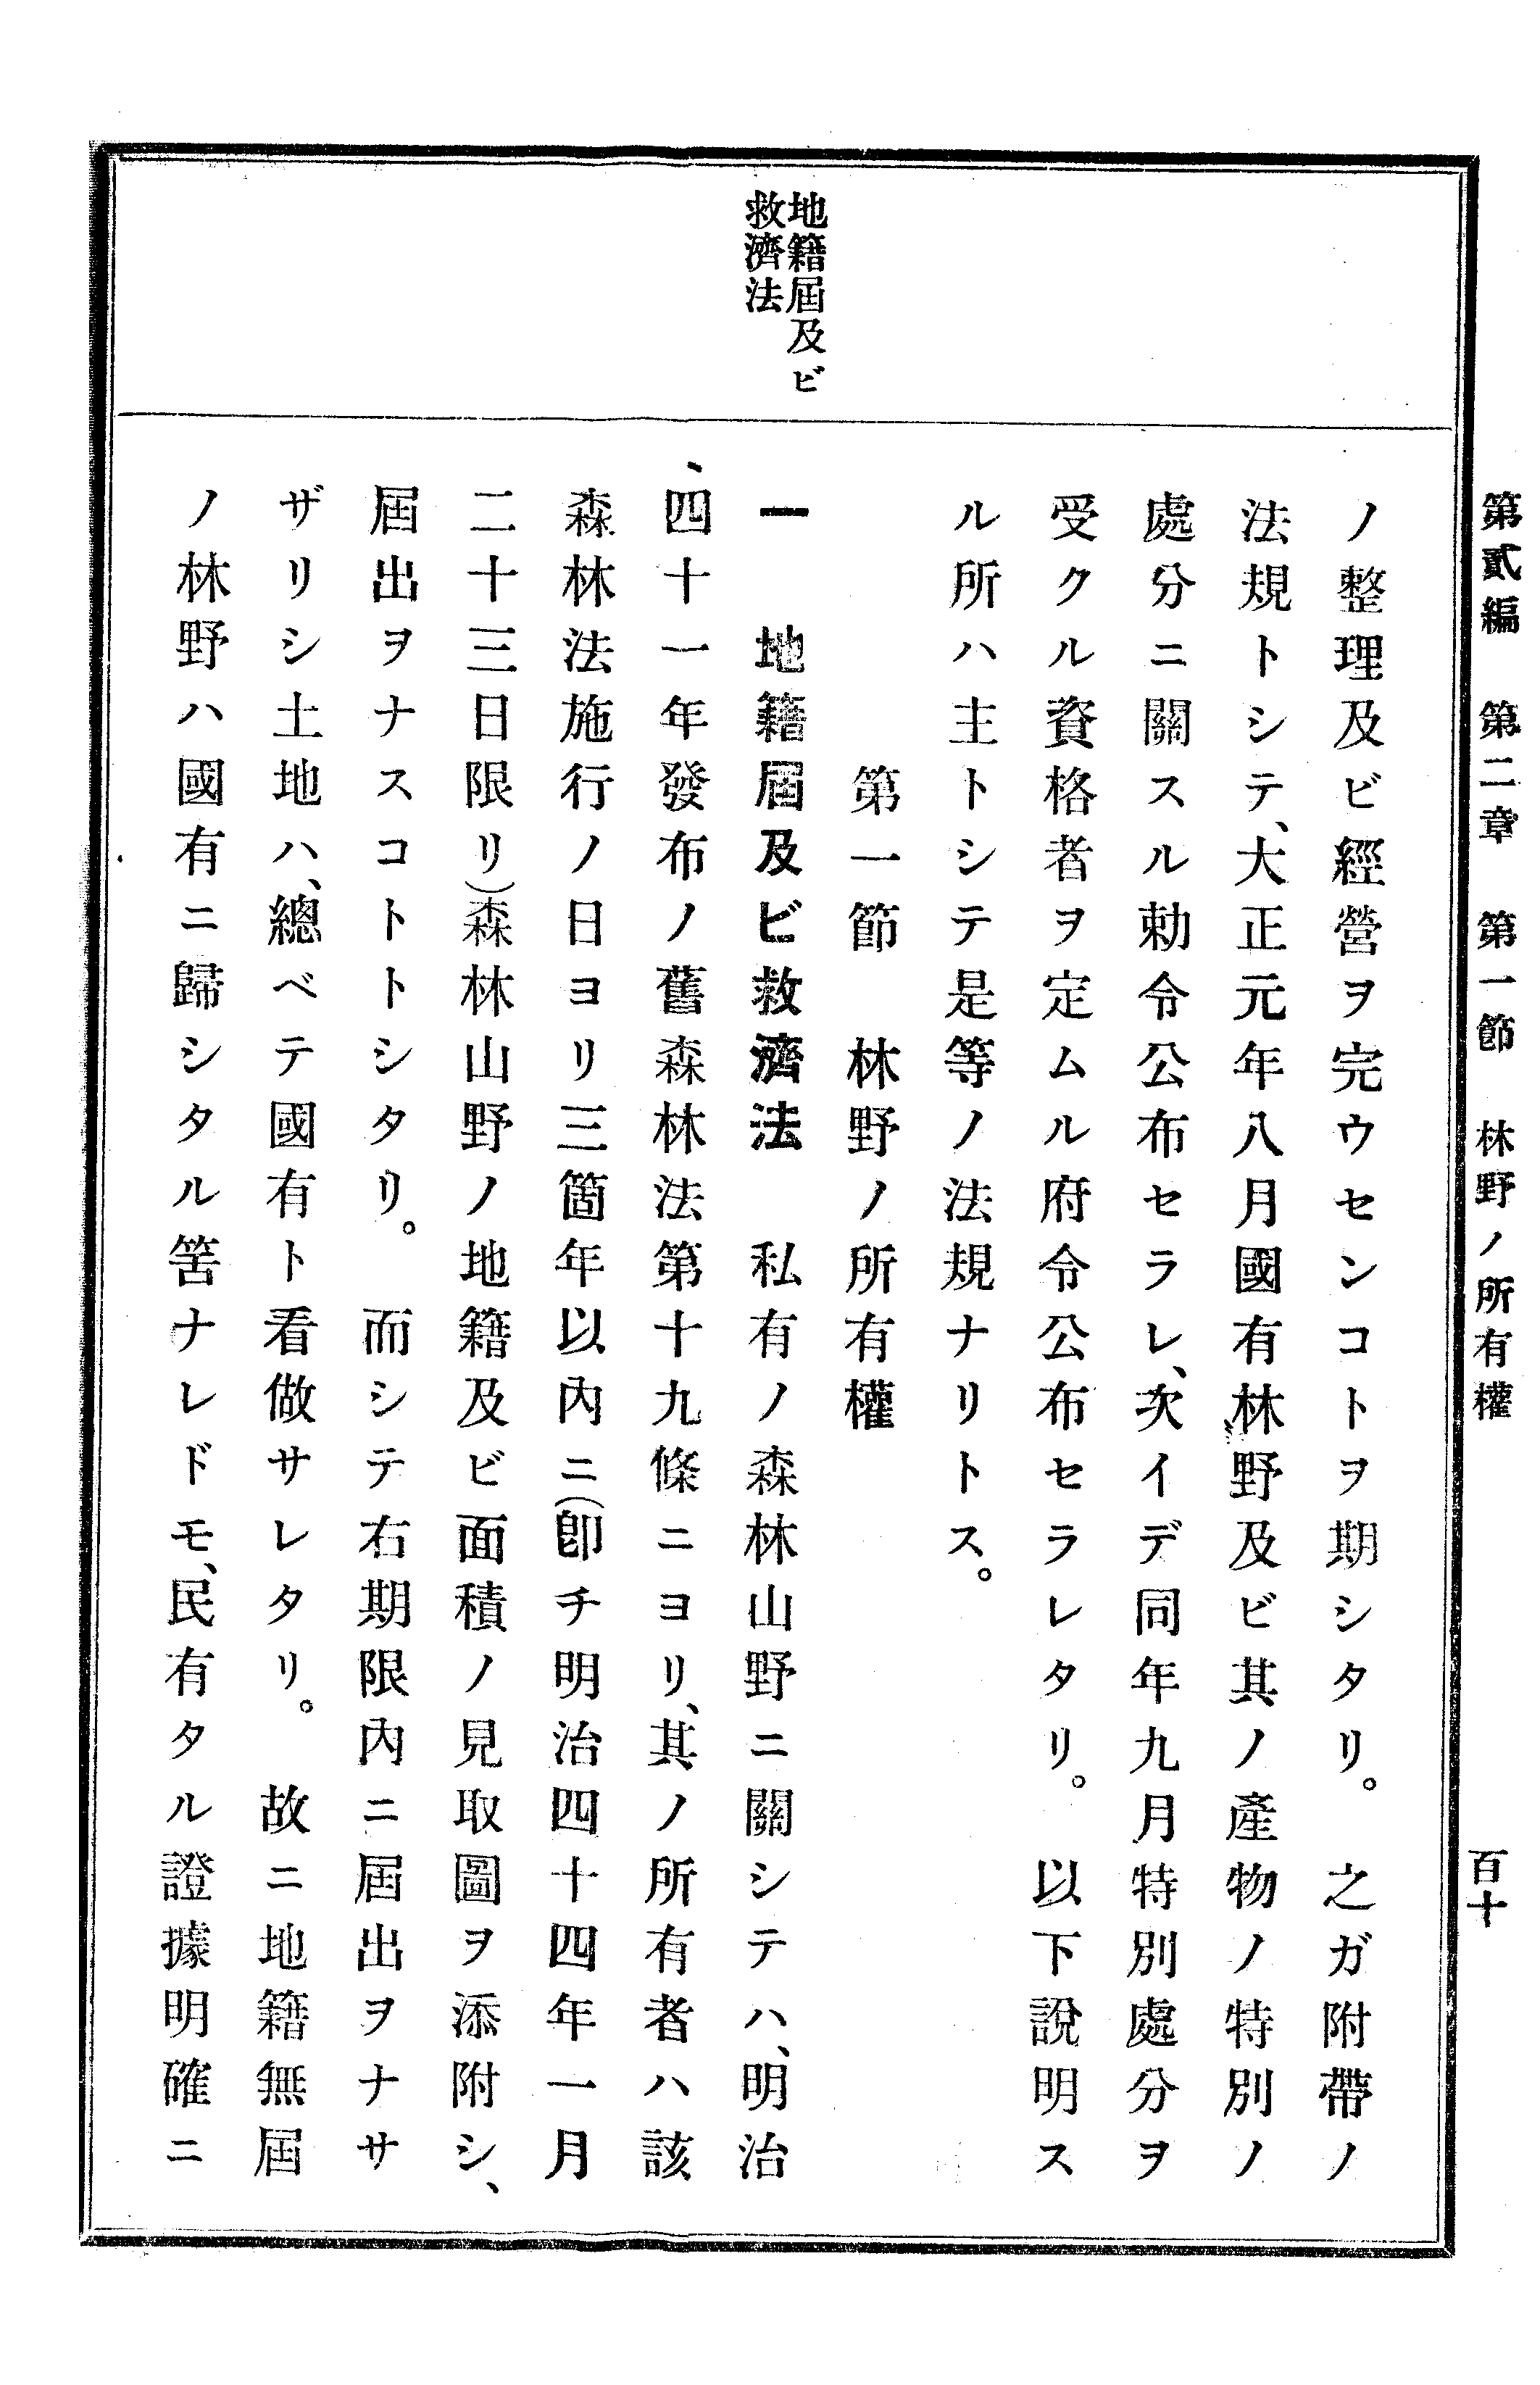 第貳編　第二章　第一節　林野ノ所有權
百十
地籍屆及ビ
救濟法
ノ整理及ビ經營ヲ完ウセンコトヲ期シタリ。　之ガ附帶ノ
法規トシテ、大正元年八月國有林野及ビ其ノ產物ノ特別ノ
處分ニ關スル勅令公布セラレ、次イデ同年九月特別處分ヲ
受クル資格者ヲ定ムル府令公布セラレタリ。　以下說明ス
ル所ハ主トシテ是等ノ法規ナリトス。
第一節　林野ノ所有權
一　地籍屆及ビ救濟法　私有ノ森林山野ニ關シテハ、明治
四十一年發布ノ舊森林法第十九條ニヨリ、其ノ所有者ハ該
森林法施行ノ日ヨリ三箇年以內ニ(卽チ明治四十四年一月
二十三日限リ)森林山野ノ地籍及ビ面積ノ見取圖ヲ添附シ、
屆出ヲナスコトトシタリ。　而シテ右期限內ニ屆出ヲナサ
ザリシ土地ハ、總ベテ國有ト看做サレタリ。　故ニ地籍無屆
ノ林野ハ國有ニ歸シタル筈ナレドモ、民有タル證據明確ニ